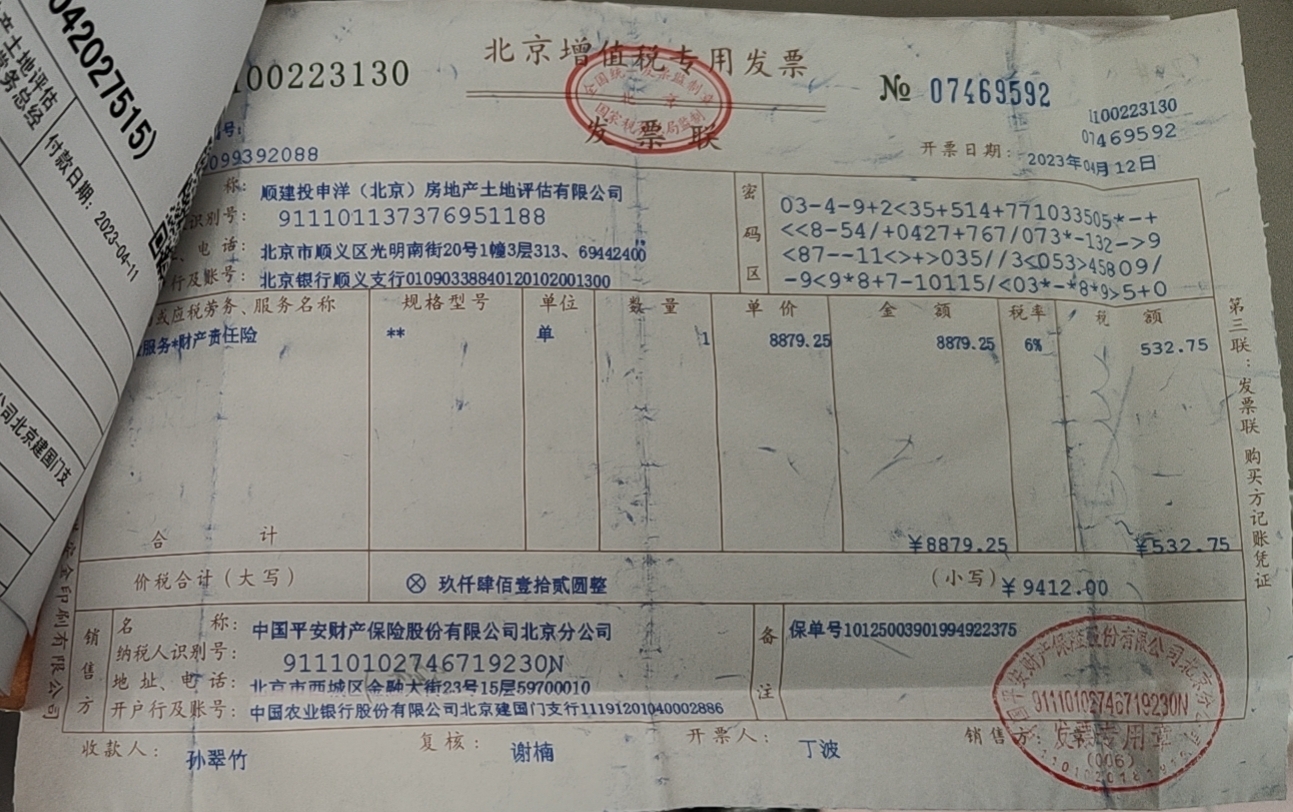 042027515)
产土地评估
常务总经
付款日期: 2023-04-11
公司北京建国门支
100223130
北京增值税专用发票
发票联
全国统一发票监制章
北京
国家税务总局监制
№ 07469592
1100223130
07469592
开票日期: 2023年04月12日
号:
099392088
称: 顺建投申洋（北京）房地产土地评估有限公司
识别号: 911101137376951188
、电话: 北京市顺义区光明南街20号1幢3层313、69442400
行及账号: 北京银行顺义支行01090338840120102001300
密码区
03-4-9+2<35+514+771033505*-+
<<8-54/+0427+767/073*-132->9
<87--11<>+>035//3<053>45809/
-9<9*8+7-10115/<03*-*8*9>5+0
或应税劳务、服务名称 规格型号 单位 数量 单价 金额 税率 税额
服务*财产责任险 ** 单 1 8879.25 8879.25 6% 532.75
合计 ¥8879.25 ¥532.75
价税合计（大写） ⊗ 玖仟肆佰壹拾贰圆整 （小写）¥9412.00
销售方
名称: 中国平安财产保险股份有限公司北京分公司
纳税人识别号: 91110102746719230N
地址、电话: 北京市西城区金融大街23号15层59700010
开户行及账号: 中国农业银行股份有限公司北京建国门支行11191201040002886
备注
保单号10125003901994922375
收款人: 孙翠竹 复核: 谢楠 开票人: 丁波 销售方:
91110102746719230N
发票专用章
(006)
第三联：发票联 购买方记账凭证
印制有限公司